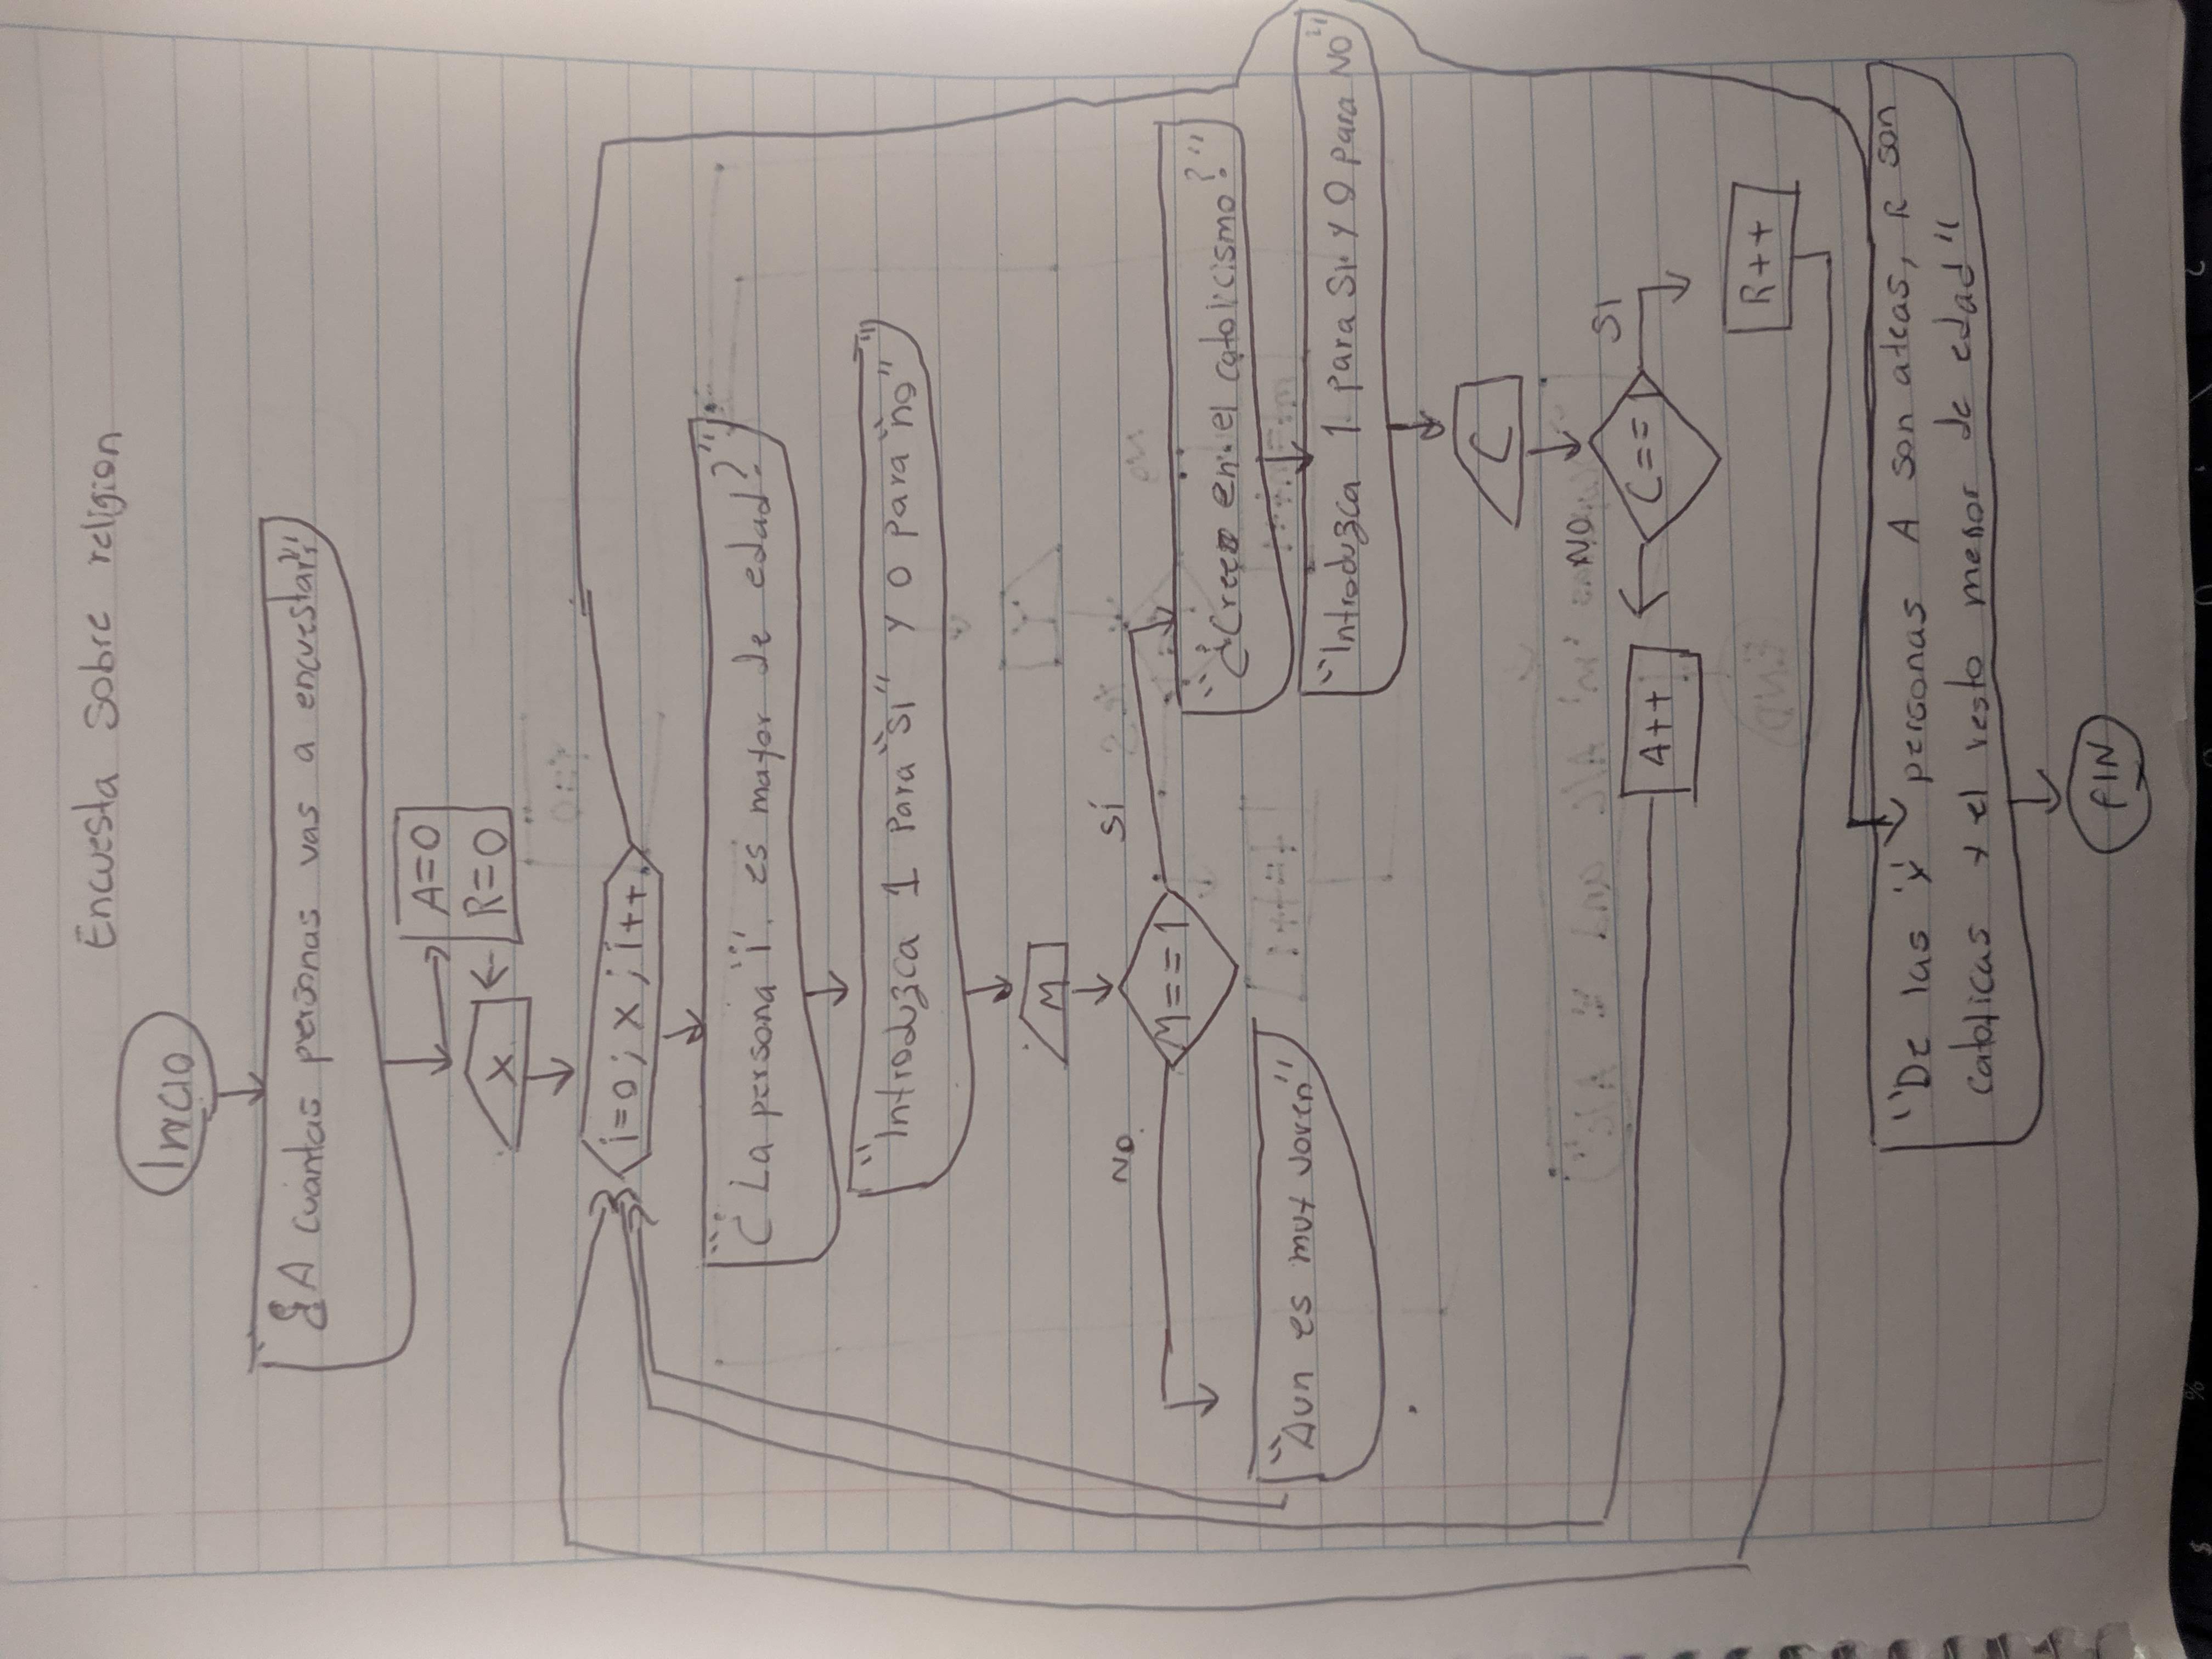 Encuesta sobre religion
Inicio
"¿A cuantas personas vas a encuestar?"
A=0
R=0
X
i=0; X; i++
"¿La persona 'i' es mayor de edad?"
"Introduzca 1 para "si" y 0 para "no""
M
NO
SÍ
M==1
"¿Cree en el catolicismo?"
"Aun es muy joven"
"Introduzca 1 para SI y 0 para NO"
C
NO
SI
C==1
A++
R++
"De las 'x' personas A son ateas, R son
catolicas y el resto menor de edad"
FIN